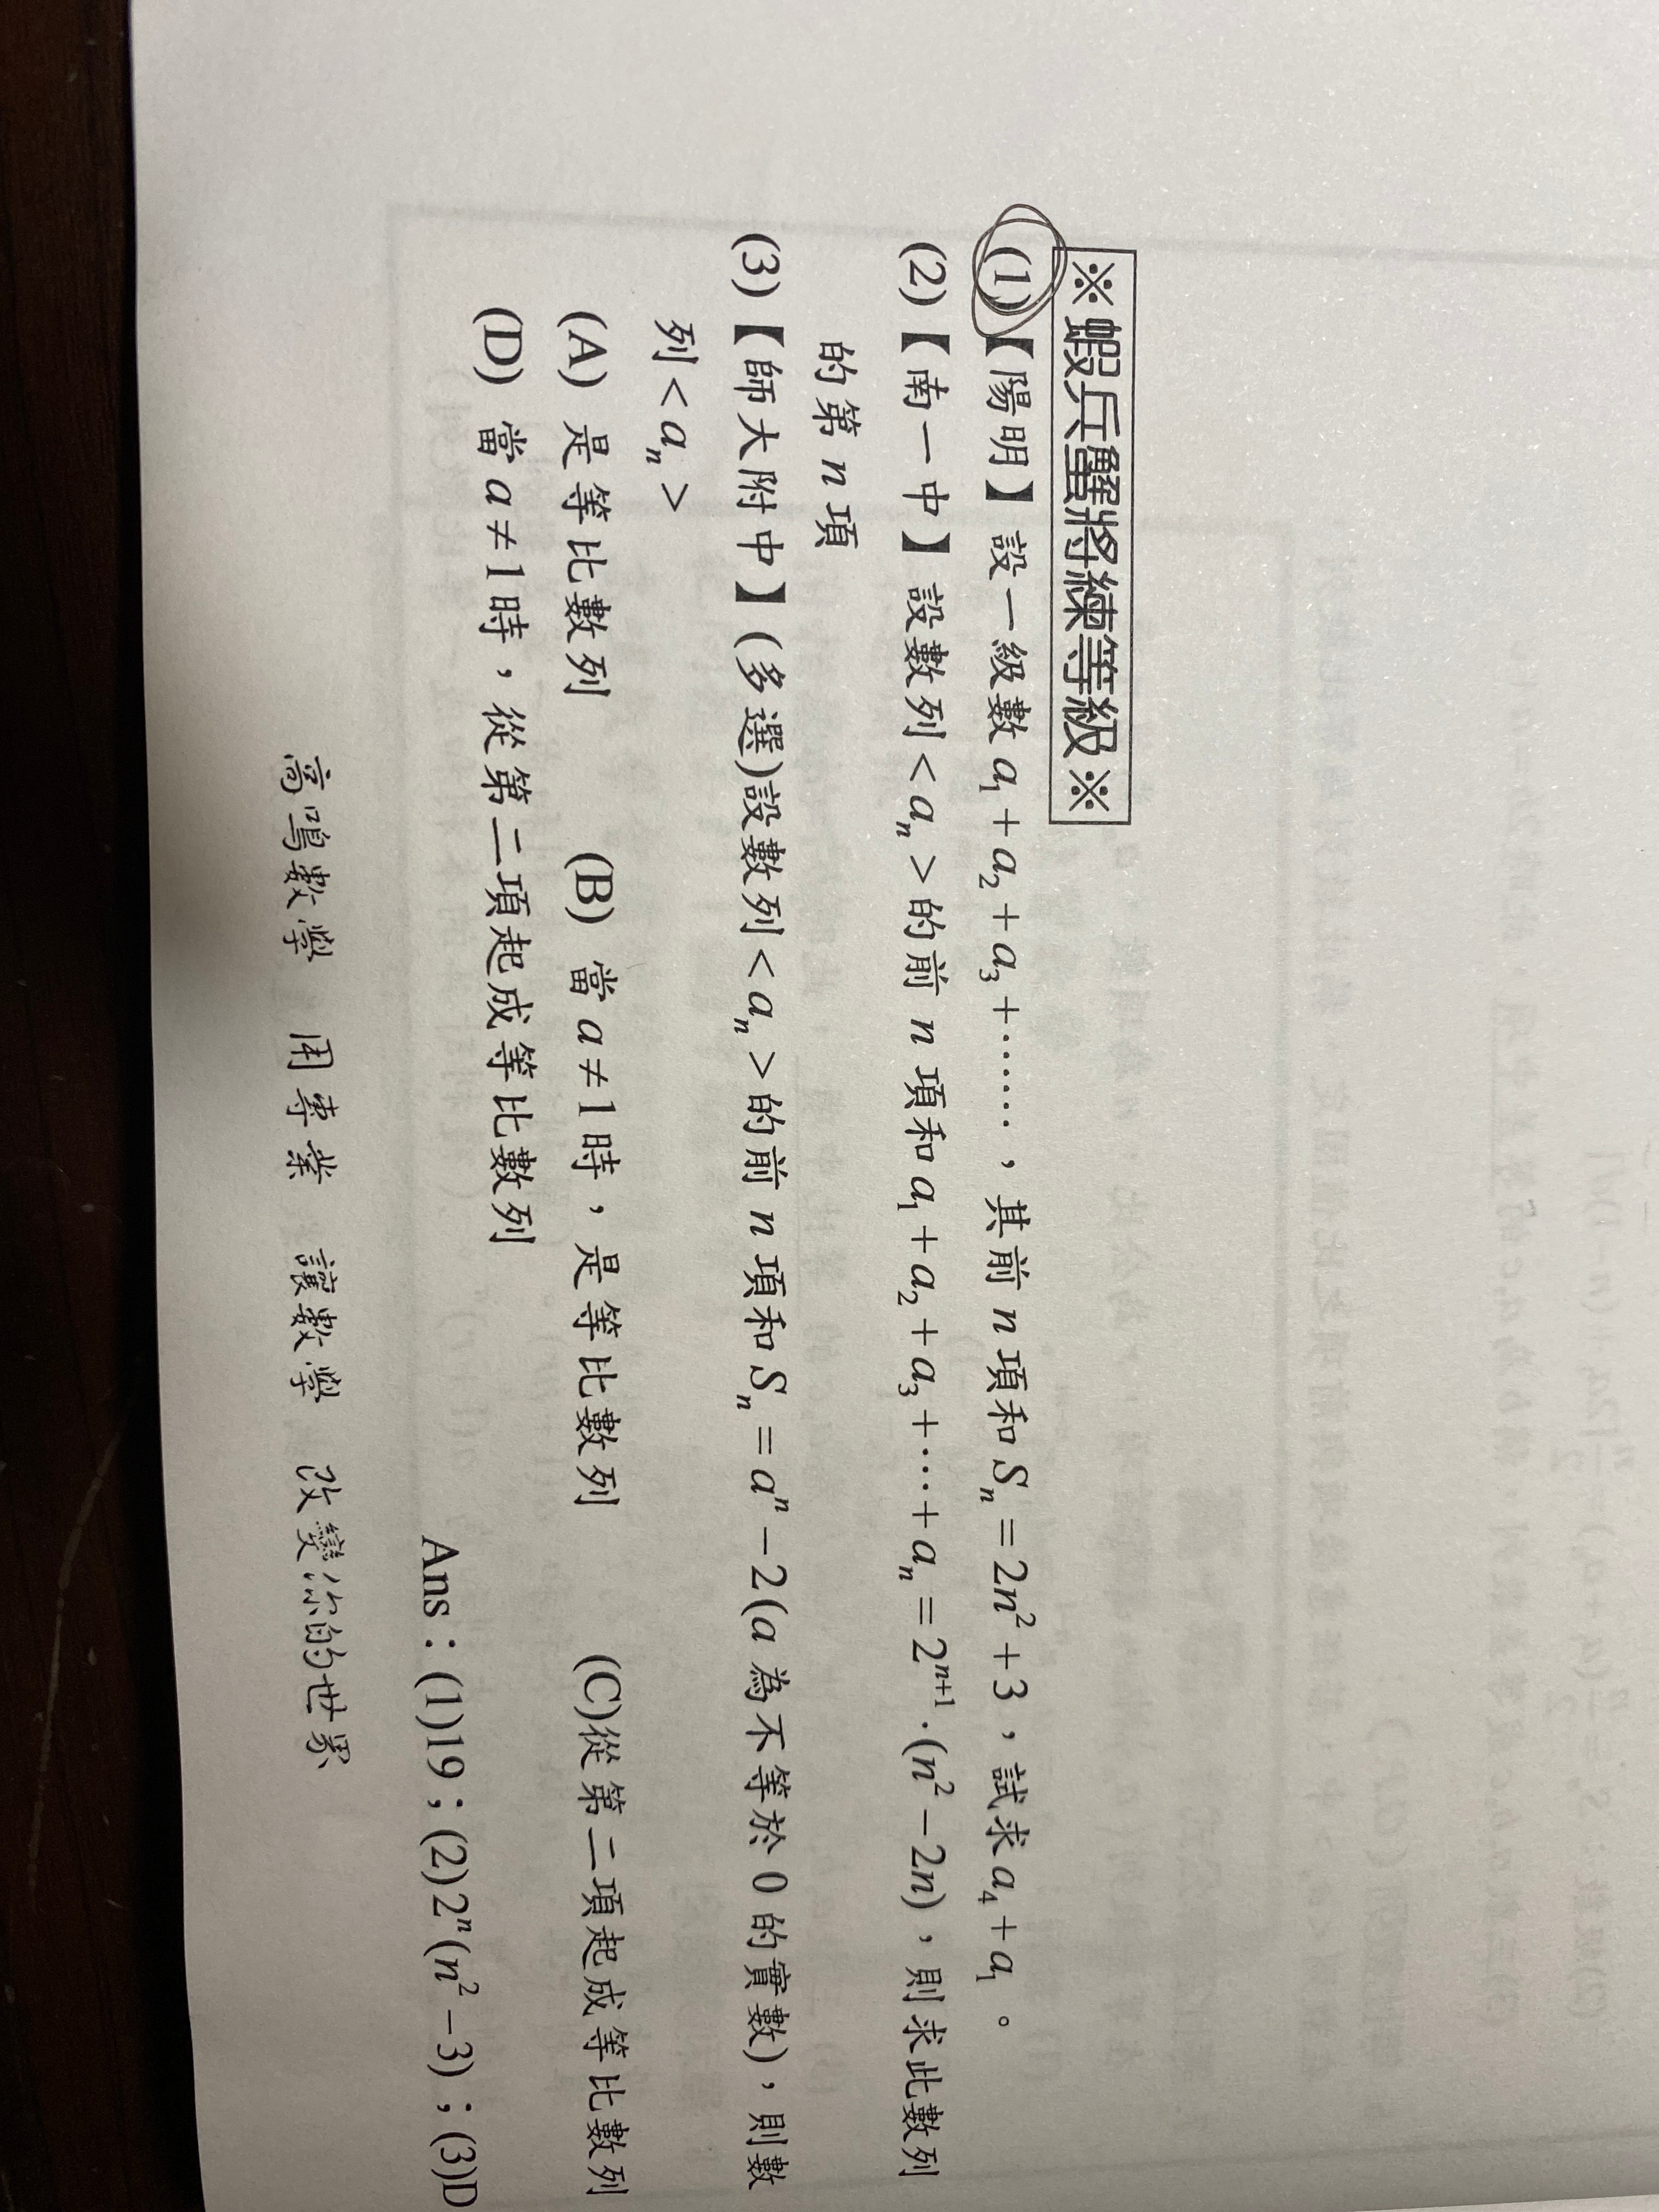 ※蝦兵蟹將練等級※
(1)【陽明】設一級數 a₁ + a₂ + a₃ + ……，其前 n 項和 Sₙ = 2n² + 3，試求 a₄ + a₁。
(2)【南一中】設數列 < aₙ > 的前 n 項和 a₁ + a₂ + a₃ + … + aₙ = 2ⁿ⁺¹ · (n² − 2n)，則求此數列
的第 n 項
(3)【師大附中】(多選)設數列 < aₙ > 的前 n 項和 Sₙ = aⁿ − 2 (a 為不等於 0 的實數)，則數
列 < aₙ >
(A) 是等比數列 (B) 當 a ≠ 1 時，是等比數列 (C)從第二項起成等比數列
(D) 當 a ≠ 1 時，從第二項起成等比數列
Ans：(1)19；(2)2ⁿ(n² − 3)；(3)D
高鳴數學 用專業 讓數學 改變你的世界